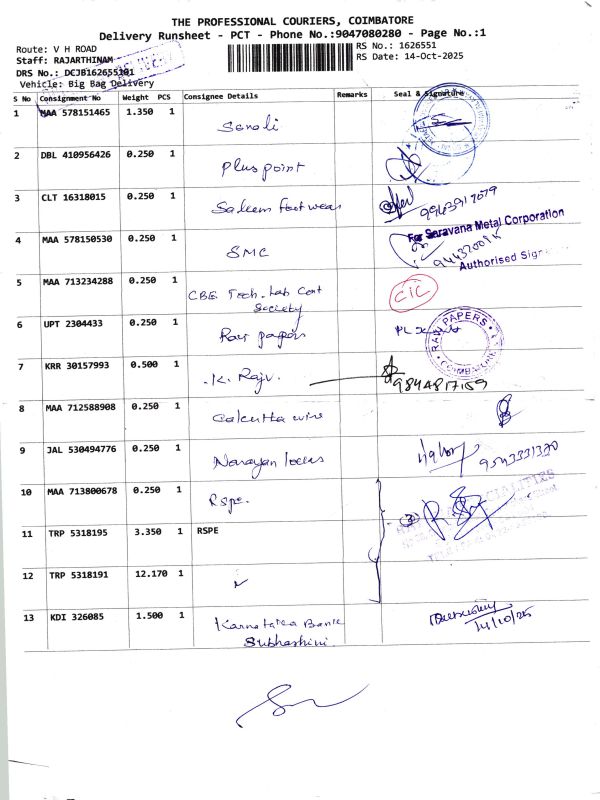 THE PROFESSIONAL COURIERS, COIMBATORE
Delivery Runsheet - PCT - Phone No.:9047080280 - Page No.:1
Route: V H ROAD
RS No.: 1626551
Staff: RAJARTHINAM
RS Date: 14-Oct-2025
DRS No.: DCJB162655101
Vehicle: Big Bag Delivery
S No Consignment No Weight PCS Consignee Details Remarks Seal & Signature
1 MAA 578151465 1.350 1 Sonali
2 DBL 410956426 0.250 1 Plus point
3 CLT 16318015 0.250 1 Saleem footwear 9943917079
4 MAA 578150530 0.250 1 SMC
For Saravana Metal Corporation
Authorised
5 MAA 713234288 0.250 1 CBE Tech. Lab Cont CIC
Society
6 UPT 2304433 0.250 1 Ravi papers RAVI PAPERS COIMBATORE
7 KRR 30157993 0.500 1 K. Raju 9844817159
8 MAA 712588908 0.250 1 Calcutta wire
9 JAL 530494776 0.250 1 Narayan locks 9543331320
10 MAA 713800678 0.250 1 Rspe.
11 TRP 5318195 3.350 1 RSPE
12 TRP 5318191 12.170 1
13 KDI 326085 1.500 1 Karnataka Bank
Subhashini.
14/10/25